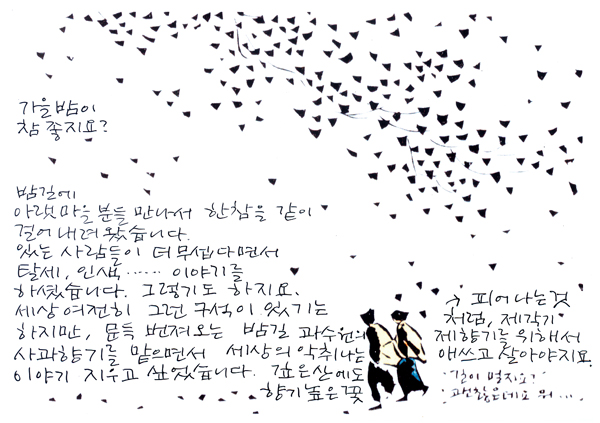 가을밤이
참 좋지요?
밤길에
아랫마을 분들 만나서 한참을 같이
걸어 내려 왔습니다.
있는 사람들이 더 무섭다면서
탈세, 인색...... 이야기를
하셨습니다. 그렇기도 하지요.
세상 여전히 그런 구석이 있기는
하지만, 문득 번져오는 밤길 과수원의
사과향기를 맡으면서 세상의 악취나는
이야기 지우고 싶었습니다. 깊은 산에도
향기 높은 꽃
→ 피어나는 것
처럼, 제각기
제 향기를 위해서
애쓰고 살아야지요.
길이 멀지요?
괜찮은데요 뭐...